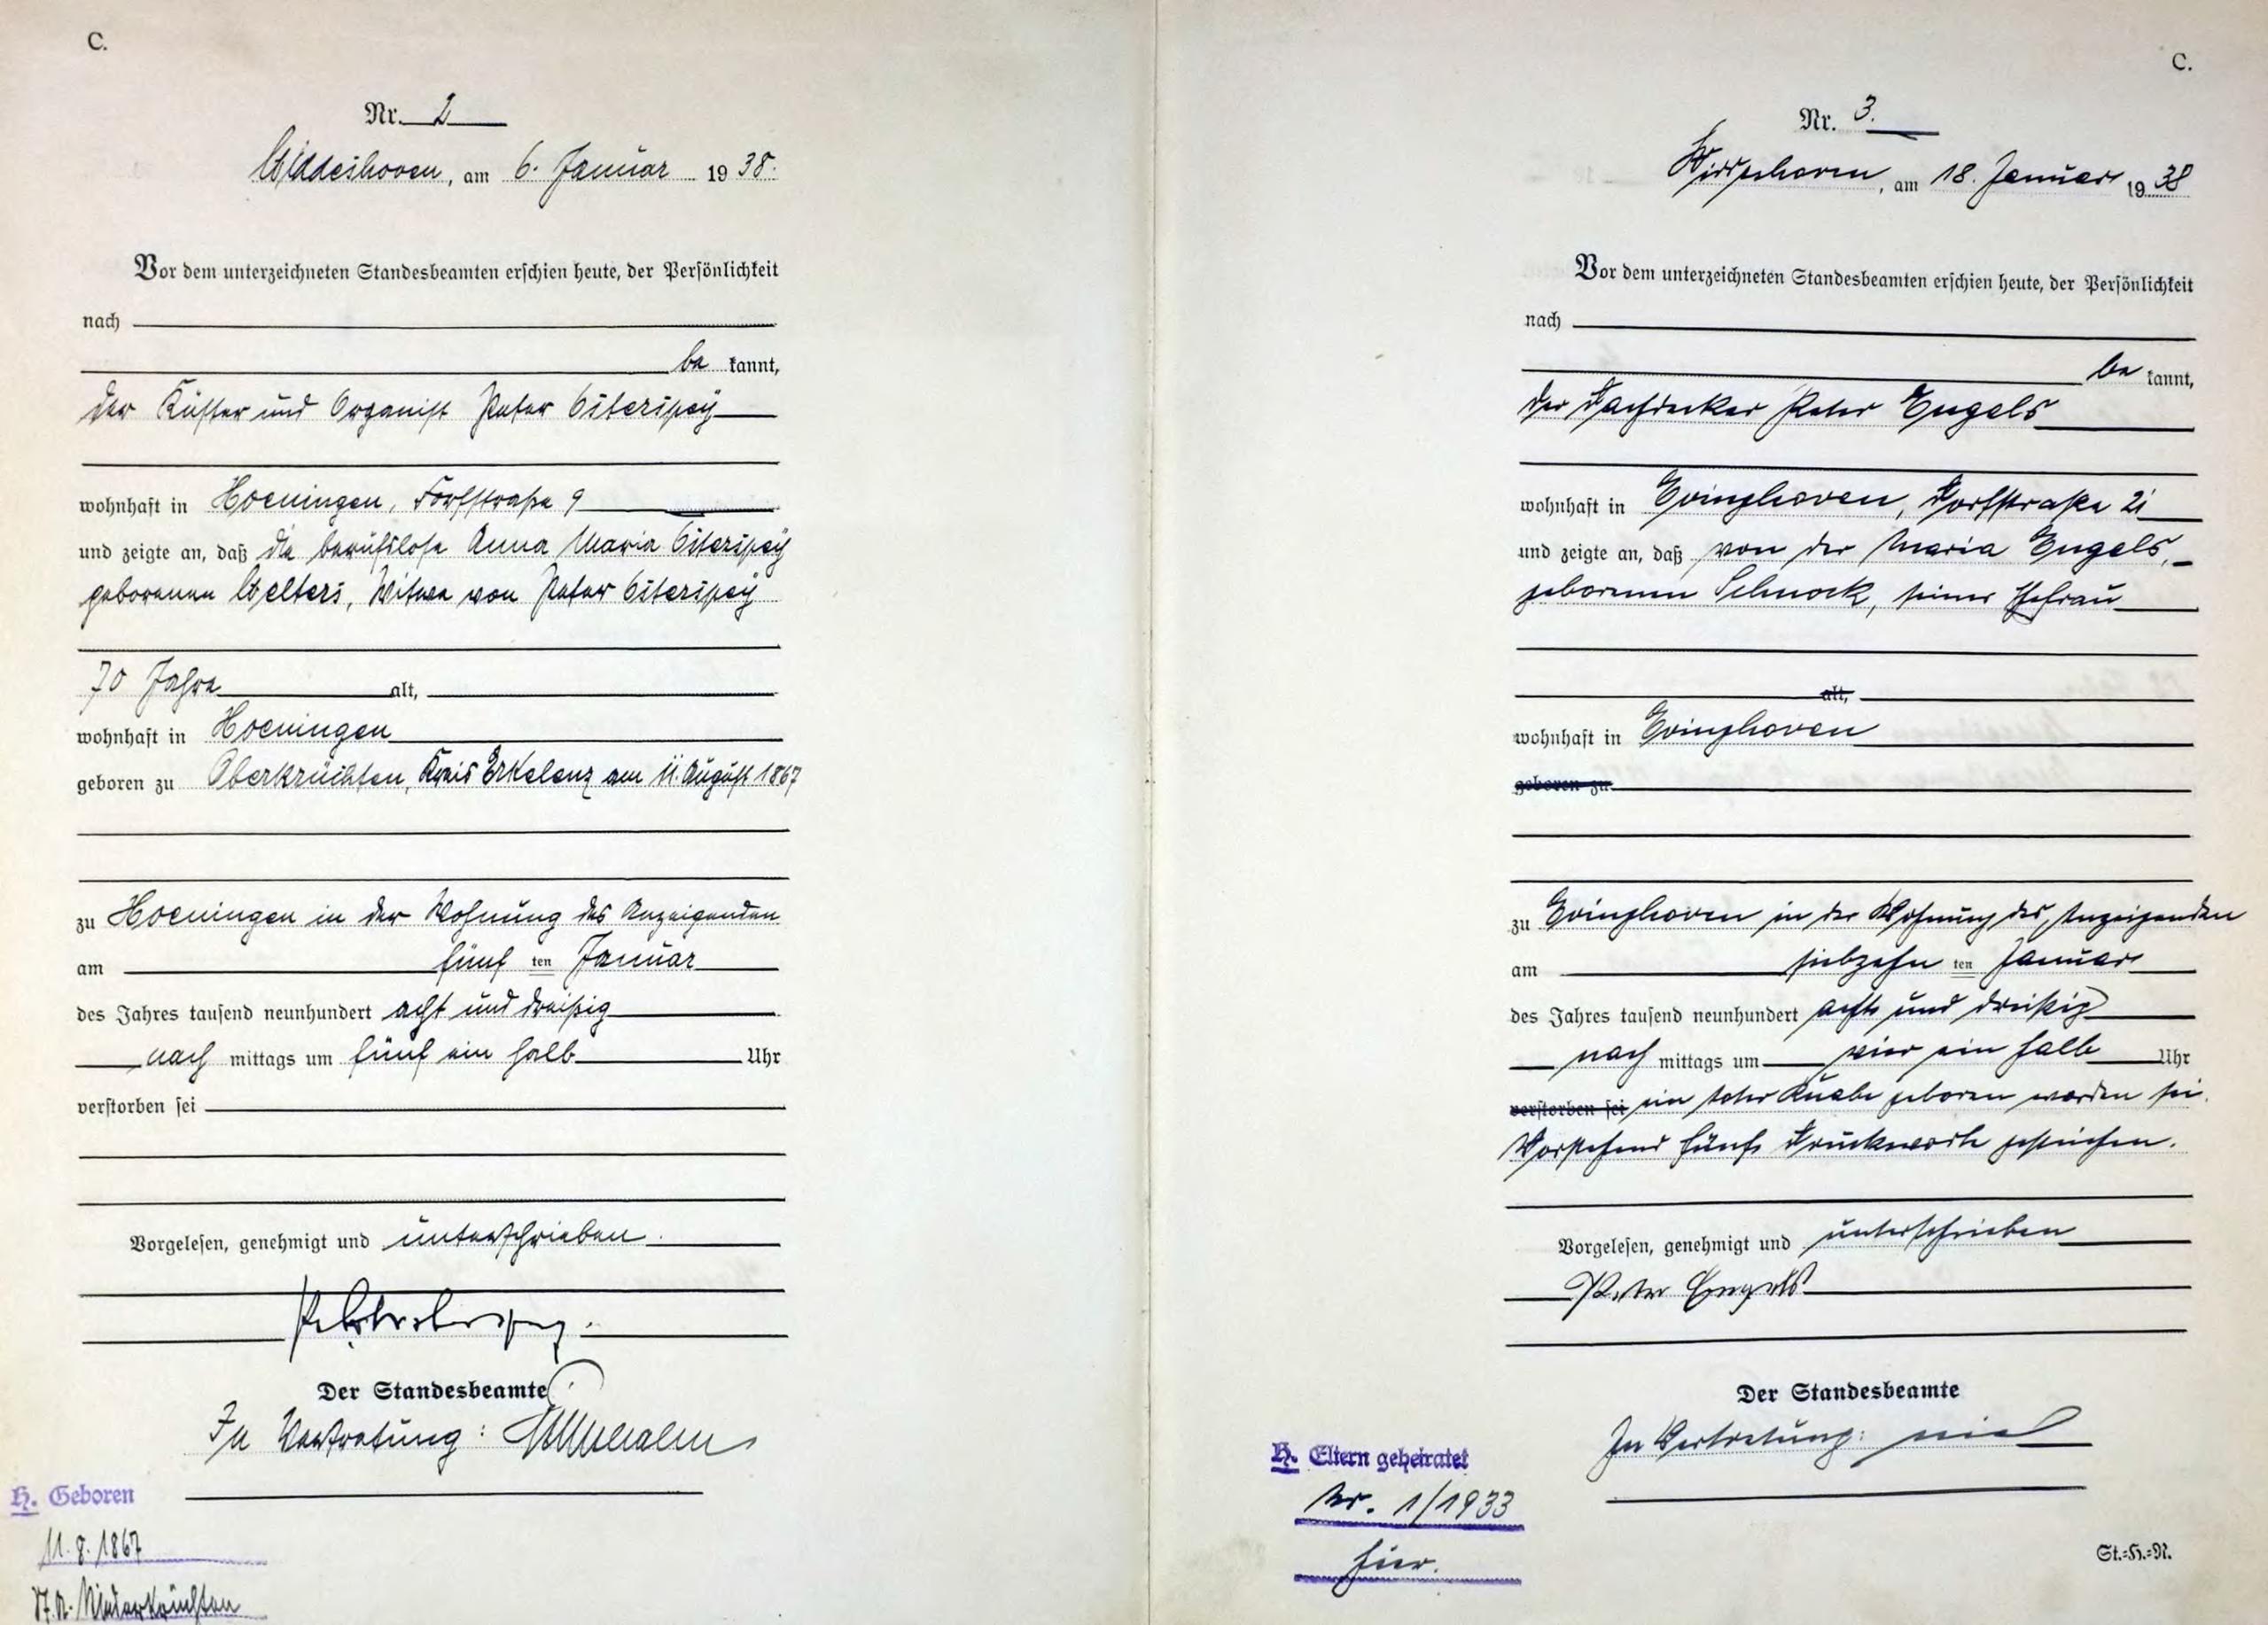 C.
Nr. 2
Widdeshoven, am 6. Januar 1938.
Vor dem unterzeichneten Standesbeamten erschien heute, der Persönlichkeit
nach
be kannt,
der Küster und Organist Peter Osterspey
wohnhaft in Hoeningen, Dorfstraße 9
und zeigte an, daß die berufslose Anna Maria Osterspey
geborenen Welters, Witwe von Peter Osterspey
70 Jahre alt,
wohnhaft in Hoeningen
geboren zu Oberkrüchten, Kreis Erkelenz am 11. August 1867
zu Hoeningen in der Wohnung des Anzeigenden
am fünf ten Januar
des Jahres tausend neunhundert acht und dreißig
nach mittags um fünf ein halb Uhr
verstorben sei
Vorgelesen, genehmigt und unterschrieben.
Der Standesbeamte
In Vertretung:
H. Geboren
11.8.1867
St.A. Niederkrüchten
C.
Nr. 3.
Widdeshoven, am 18. Januar 1938
Vor dem unterzeichneten Standesbeamten erschien heute, der Persönlichkeit
nach
be kannt,
der Dachdecker Peter Engels
wohnhaft in Evinghoven, Dorfstraße 21
und zeigte an, daß von der Maria Engels,
geborenen Schnock, seiner Ehefrau
alt,
wohnhaft in Evinghoven
geboren zu
zu Evinghoven in der Wohnung des Anzeigenden
am siebzehn ten Januar
des Jahres tausend neunhundert acht und dreißig
nach mittags um vier ein halb Uhr
verstorben sei ein toter Knabe geboren worden sei.
Vorstehend fünf Druckworte gestrichen.
Vorgelesen, genehmigt und unterschrieben
Peter Engels
Der Standesbeamte
In Vertretung:
H. Eltern geheiratet
Nr. 1/1933
hier.
St.=H.=N.